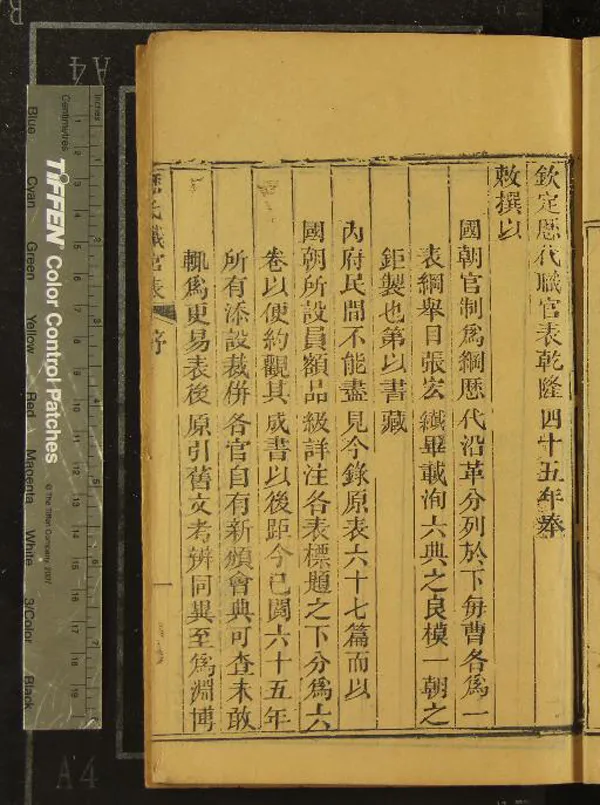 欽定歷代職官表乾隆四十五年奉
敕撰以
國朝官制爲綱歷代沿革分列於下每曹各爲一
表綱舉目張宏纖畢載洵六典之良模一朝之
鉅製也第以書藏
內府民間不能盡見今錄原表六十七篇而以
國朝所設員額品級詳注各表標題之下分爲六
卷以便約觀其成書以後距今已閱六十五年
所有添設裁倂各官自有新頒會典可查未敢
輒爲更易表後原引舊文考辨同異至爲淵博
歷代職官表
序
一
A4
A4
R
Inches
Centimetres
TIFFEN Color Control Patches
© The Tiffen Company, 2007
Blue
Cyan
Green
Yellow
Red
Magenta
White
3/Color
Black